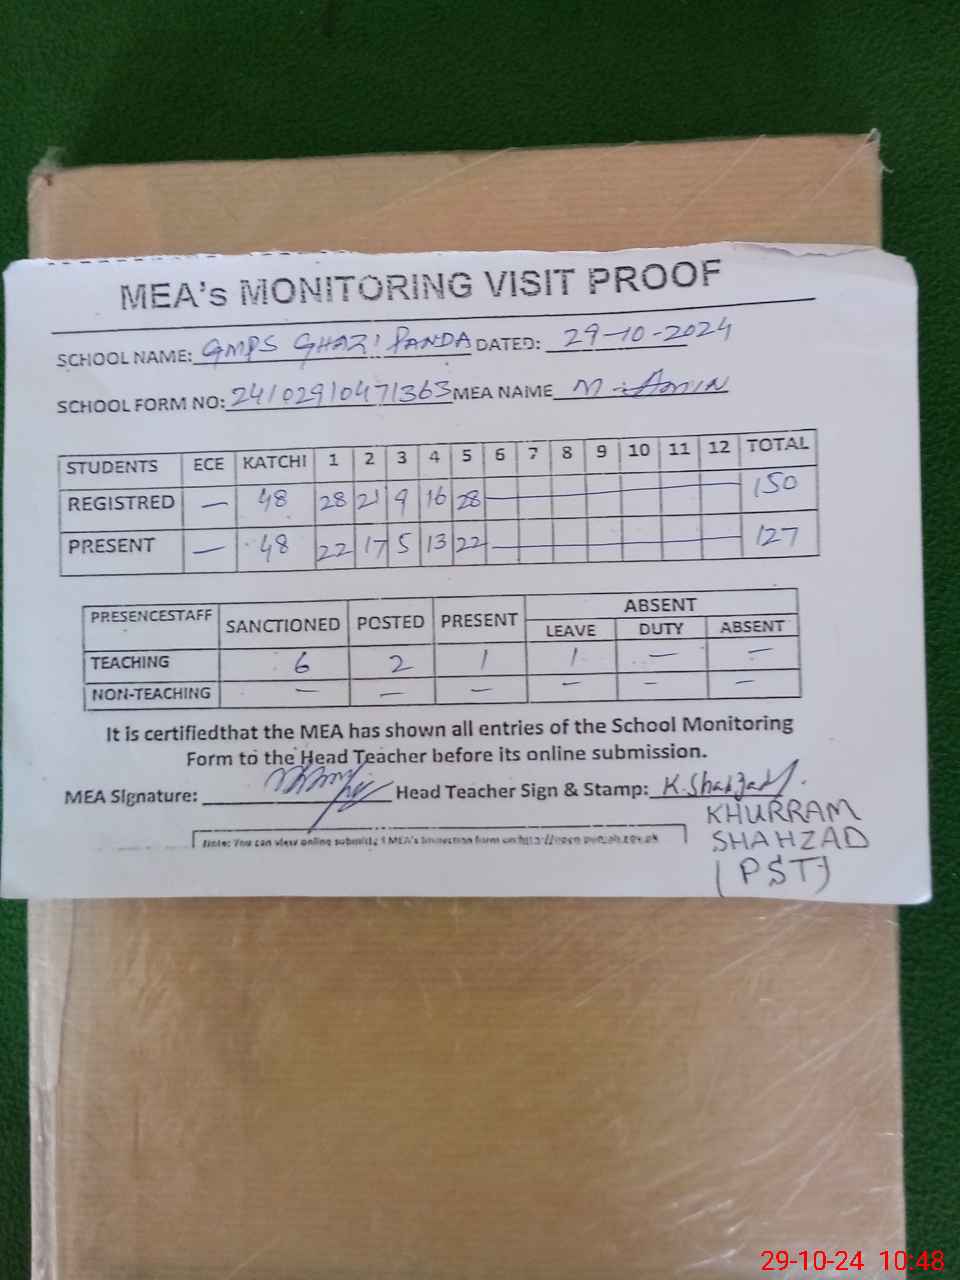 MEA's MONITORING VISIT PROOF
SCHOOL NAME: GMPS GHAZI PANDA DATED: 29-10-2024
SCHOOL FORM NO: 24102910471363 MEA NAME M. Amin
STUDENTS ECE KATCHI 1 2 3 4 5 6 7 8 9 10 11 12 TOTAL
REGISTRED — 48 28 21 9 16 28 150
PRESENT — 48 22 17 5 13 22 127
PRESENCESTAFF SANCTIONED POSTED PRESENT ABSENT
LEAVE DUTY ABSENT
TEACHING 6 2 1 1 — —
NON-TEACHING — — — — — —
It is certifiedthat the MEA has shown all entries of the School Monitoring
Form to the Head Teacher before its online submission.
MEA Signature: Head Teacher Sign & Stamp: K.Shahzad
KHURRAM
SHAHZAD
(PST)
Note: You can view online submitted MEA's Inspection form on http://open.punjab.gov.pk
29-10-24 10:48